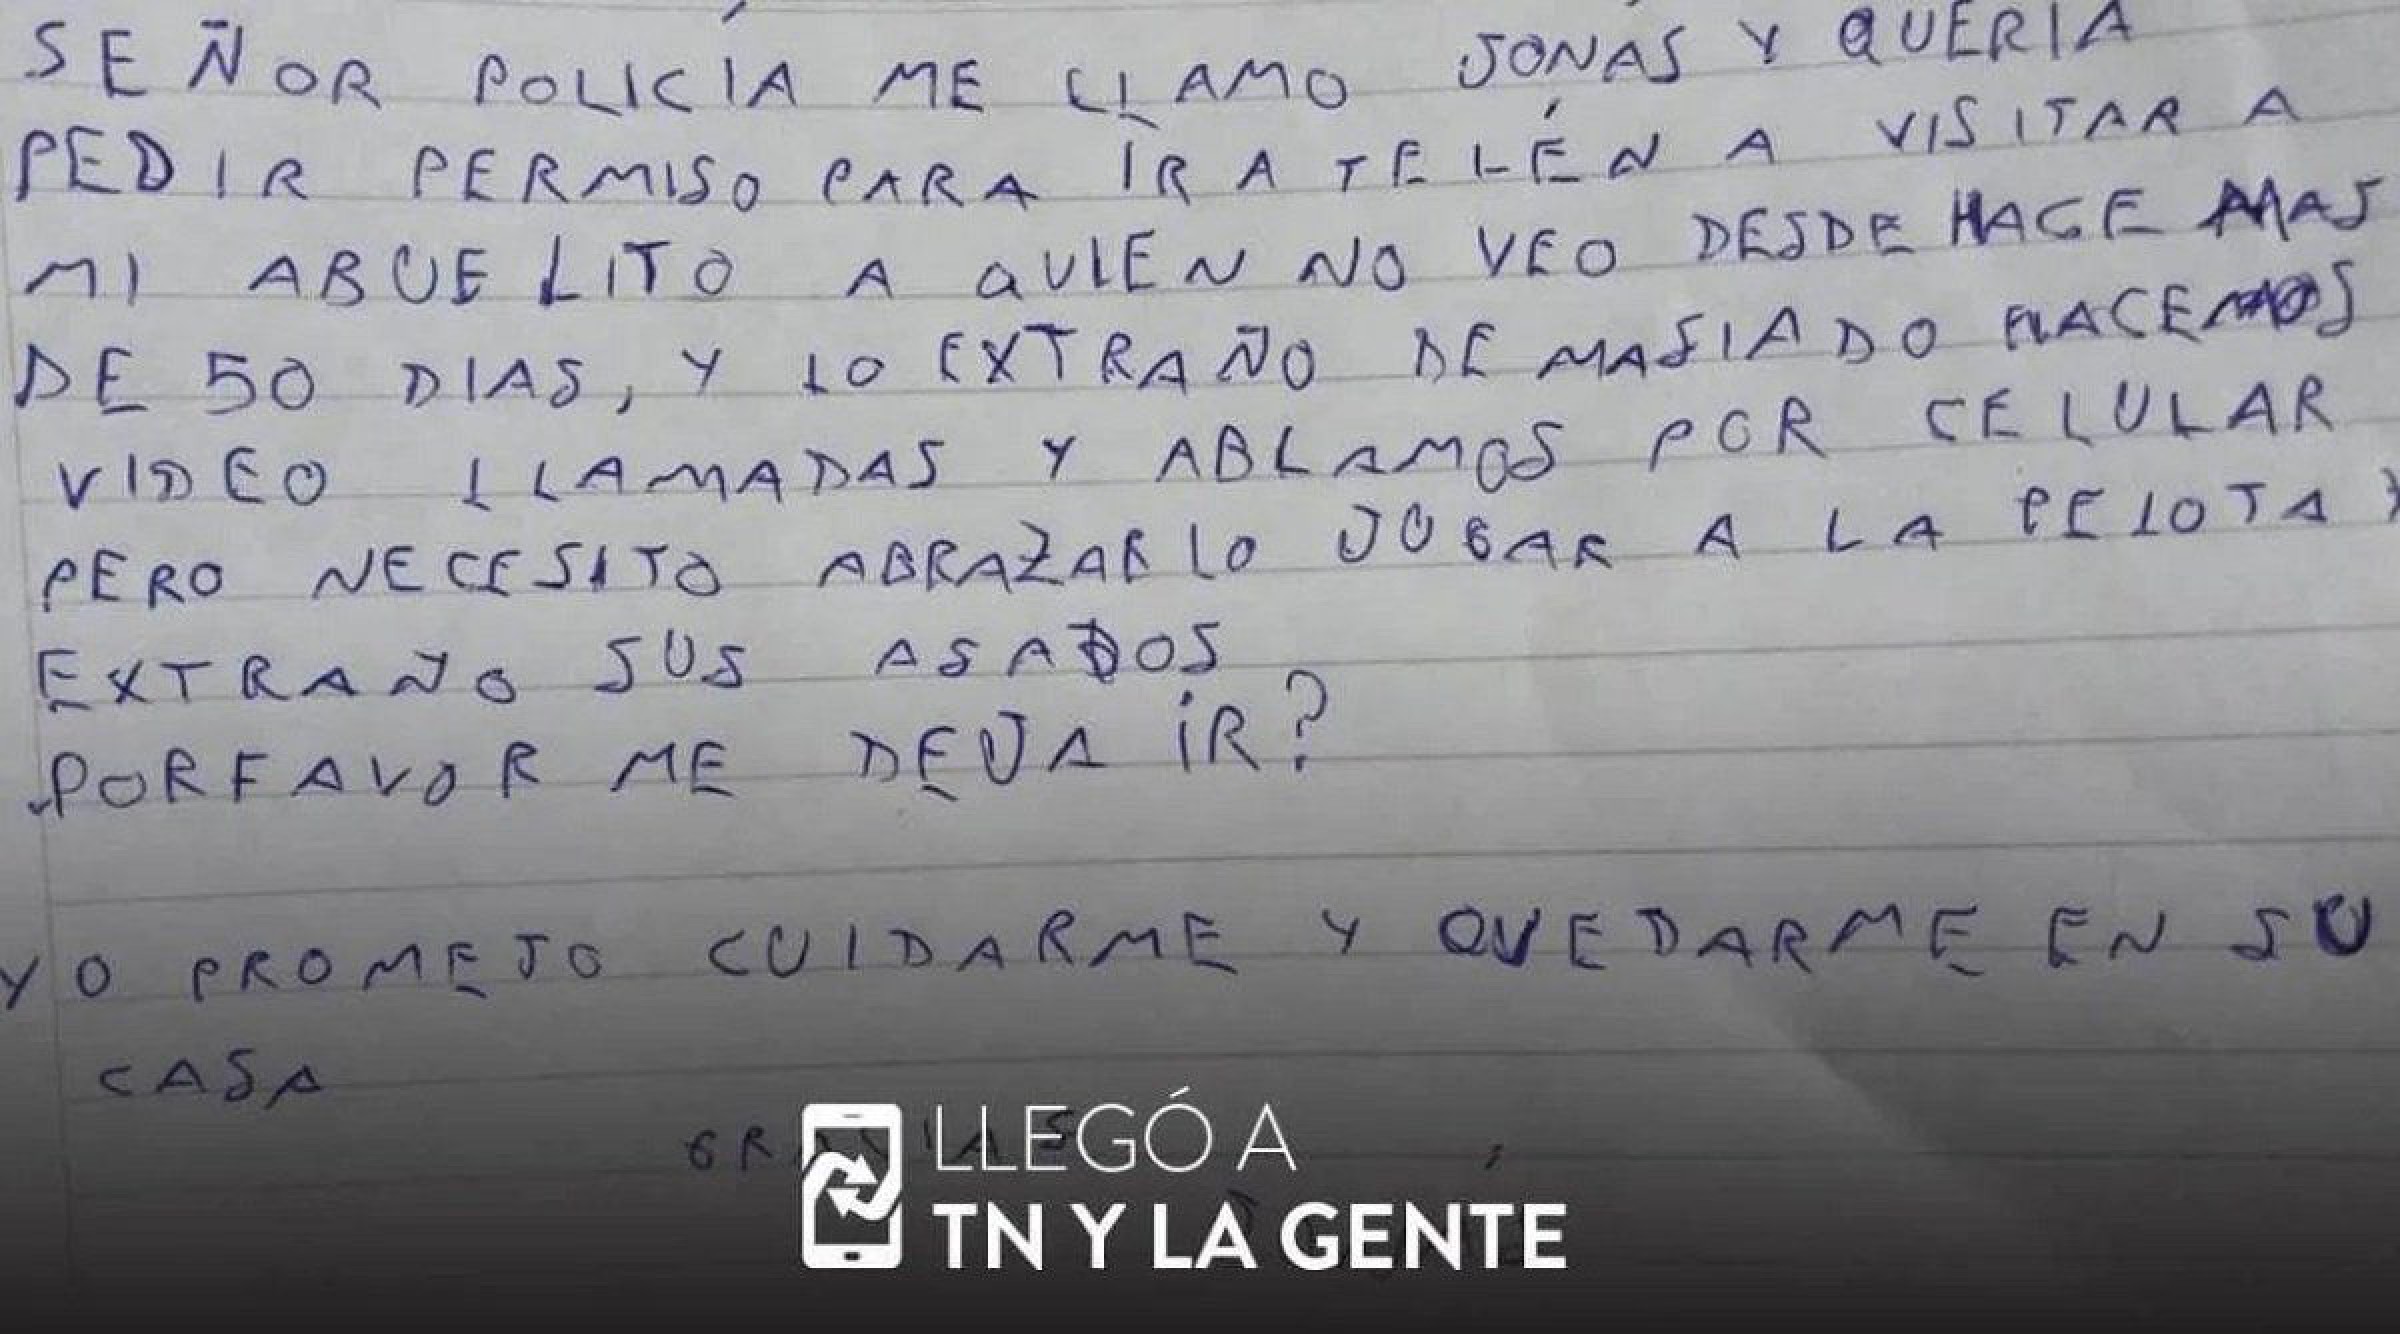 SEÑOR POLICÍA ME LLAMO JONÁS Y QUERIA
PEDIR PERMISO PARA IR A TELÉN A VISITAR A
MI ABUELITO A QUIEN NO VEO DESDE HACE MAS
DE 50 DIAS, Y LO EXTRAÑO DEMASIADO HACEMOS
VIDEO LLAMADAS Y ABLAMOS POR CELULAR
PERO NECESITO ABRAZARLO JUGAR A LA PELOTA Y
EXTRAÑO SUS ASADOS
PORFAVOR ME DEJA IR?
YO PROMETO CUIDARME Y QUEDARME EN SU
CASA
GRACIAS
LLEGÓ A
TN Y LA GENTE